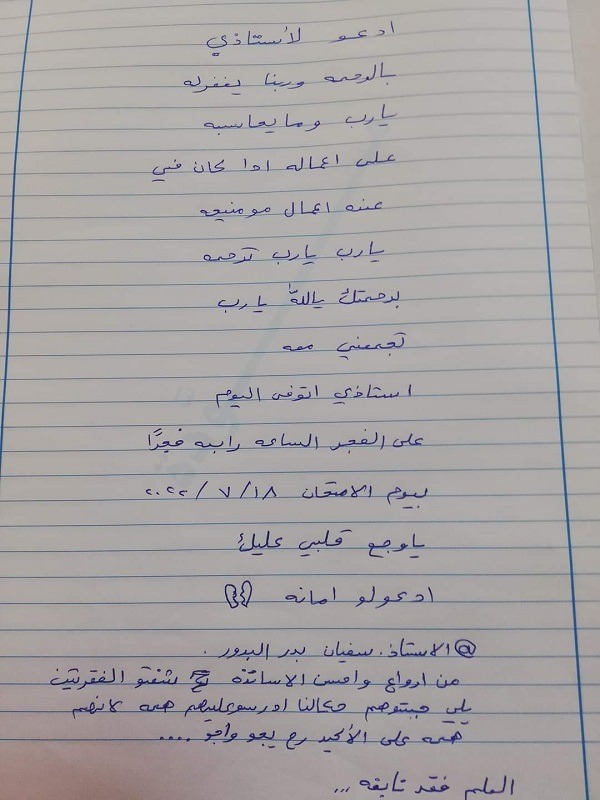 ادعو لأستاذي
بالرحمه وربنا يغفرله
يارب وما يحاسبه
على اعماله اذا كان في
عنه اعمال مو منيحه
يارب يارب ترحمه
برحمتك ياالله يارب
تجمعني معه
استاذي اتوفى اليوم
على الفجر الساعه رابعه فجرًا
بيوم الامتحان ٢٠٢٢/٧/١٨
ياوجع قلبي عليك
ادعولو امانه
@الاستاذ. سفيان بدر البدور.
من اروع واحسن الاساتذة شفتو الفقرتين
يلي جبتوهم ادرسو عليهم همه لانهم
همه على الأكيد رح يجو واجو ....
العلم فقد تابعه ...